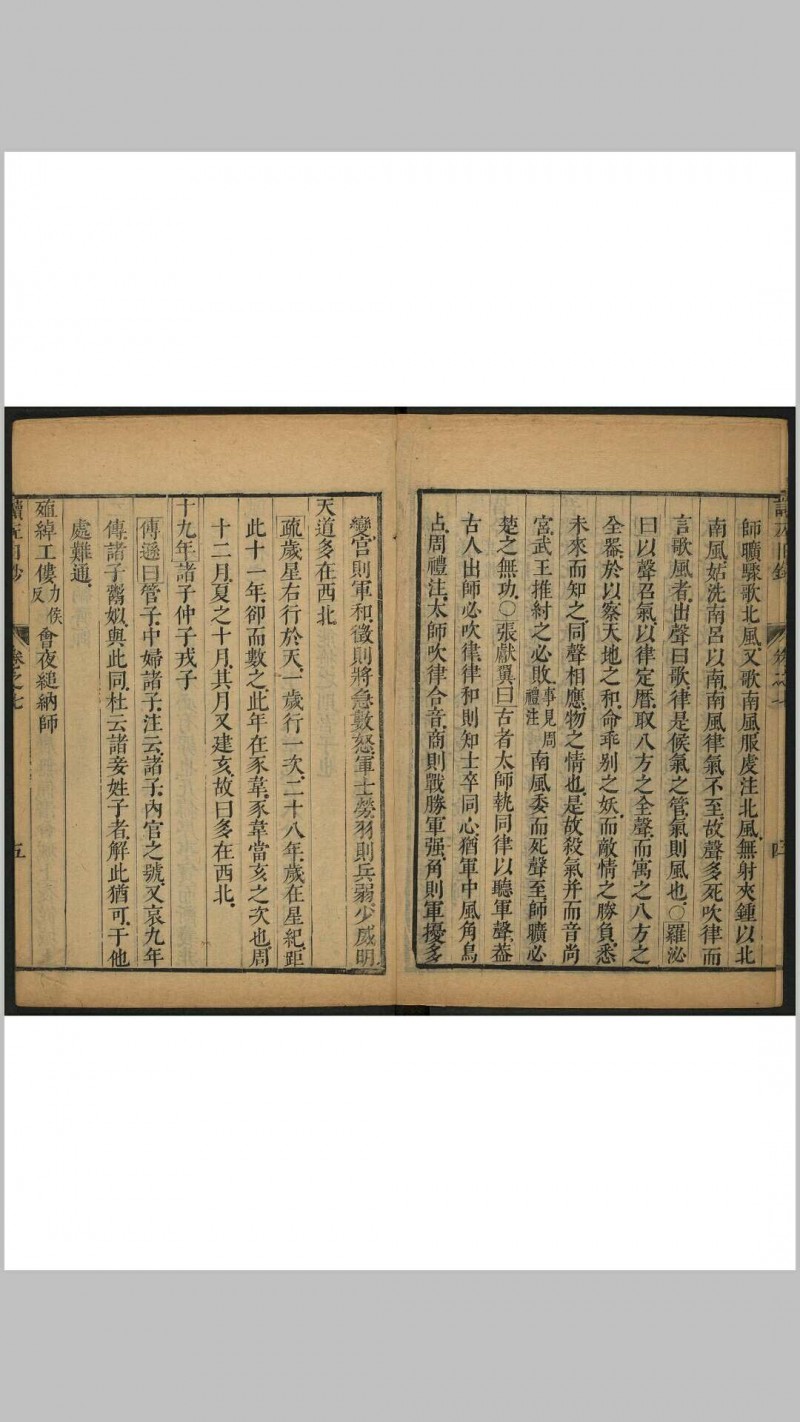 師曠驟歌北風又歌南風服虔注北風無射夾鍾以北
南風姑洗南呂以南南風律氣不至故聲多死吹律而
言歌風者出聲曰歌律是候氣之管氣則風也〇羅泌
曰以聲召氣以律定曆取八方之全聲而寓之八方之
全器於以察天地之和命乖别之妖而敵情之勝負悉
未來而知之同聲相應物之情也是故殺氣并而音尚
宮武王推紂之必敗事見周禮注南風委而死聲至師曠必
楚之無功〇張獻翼曰古者太師執同律以聽軍聲葢
古人出師必吹律律和則知士卒同心猶軍中風角鳥
占周禮注太師吹律合音商則戰勝軍强角則軍擾多
變宮則軍和徵則將急數怒軍士勞羽則兵弱少威明
天道多在西北
疏歲星右行於天一歲行一次二十八年歲在星紀距
此十一年卻而數之此年在豕韋豕韋當亥之次也周
十二月夏之十月其月又建亥故曰多在西北
十九年諸子仲子戎子
傅遜曰管子中婦諸子注云諸子內官之號又哀九年
傳諸子鬻姒與此同杜云諸妾姓子者解此猶可于他
處難通
殖綽工僂力侯反會夜縋納師
讀左日鈔
卷之七
五